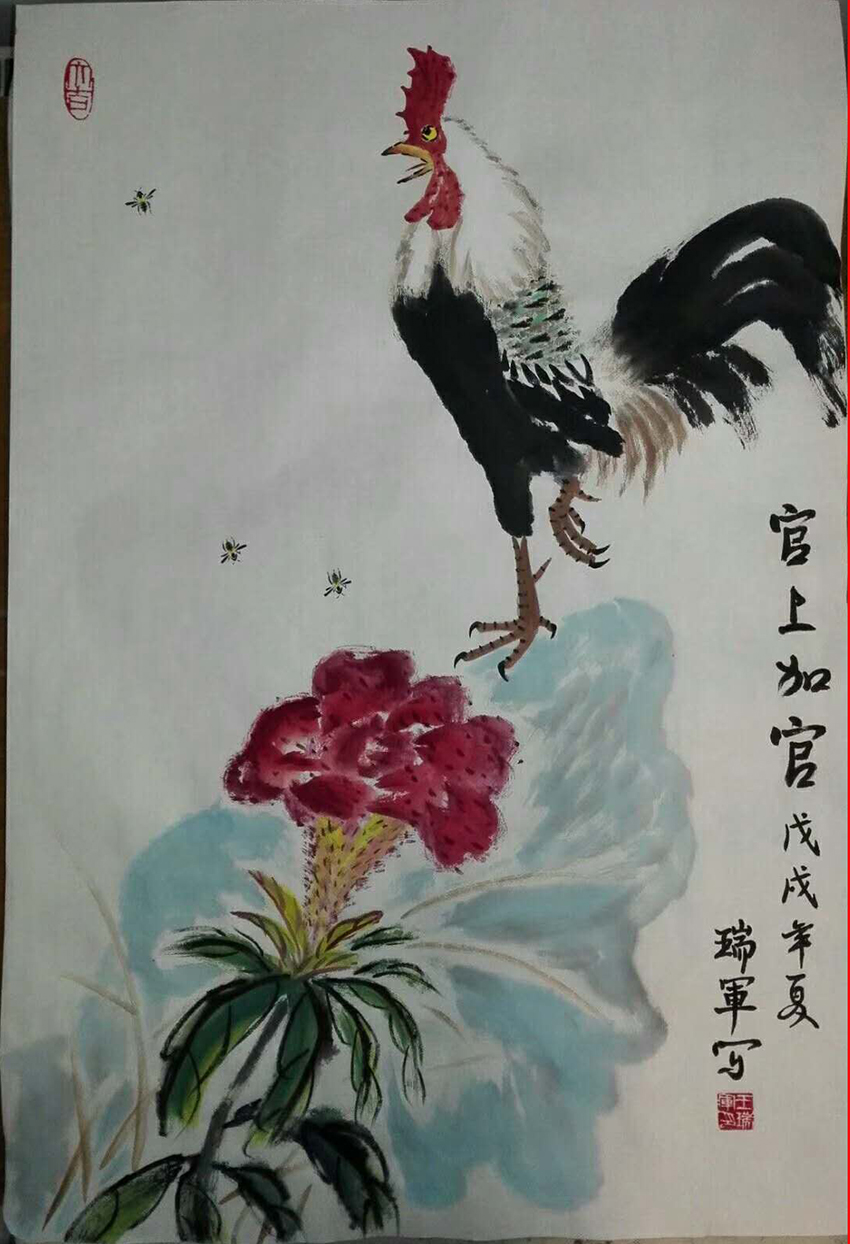 官上加官戊戌年夏
瑞軍写
王瑞軍印